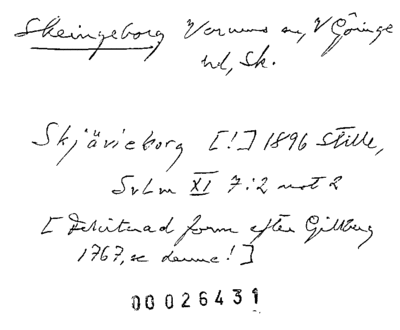 Skeingeborg Verums sn, V Göinge
hd, Sk.
Skjävieborg [!] 1896 Stille,
SvLm XI 7:2 not 2
[ form efter Gillberg
1767, se denne! ]
00026431